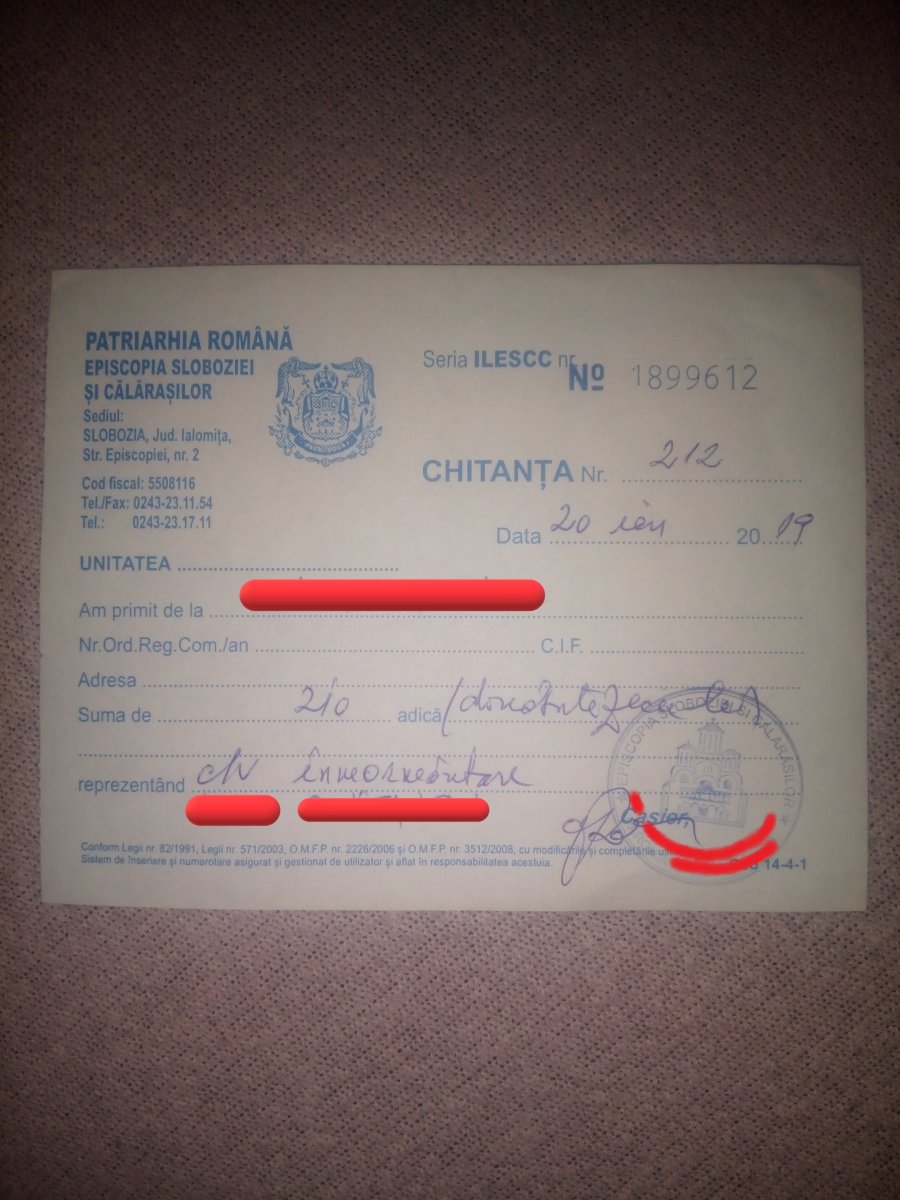 PATRIARHIA ROMÂNĂ
EPISCOPIA SLOBOZIEI
ȘI CĂLĂRAȘILOR
Sediul:
SLOBOZIA, Jud. Ialomița,
Str. Episcopiei, nr. 2
Cod fiscal: 5508116
Tel./Fax: 0243-23.11.54
Tel.: 0243-23.17.11
Seria ILESCC nr. Nº 1899612
CHITANȚA Nr. 212
Data 20 ian 2019
UNITATEA
Am primit de la
Nr.Ord.Reg.Com./an C.I.F.
Adresa
Suma de 210 adică (douăsutezece lei)
reprezentând c/v înmormântare
EPISCOPIA SLOBOZIEI ȘI CĂLĂRAȘILOR
Casier,
Conform Legii nr. 82/1991, Legii nr. 571/2003, O.M.F.P. nr. 2226/2006 și O.M.F.P. nr. 3512/2008, cu modificările și completările
Sistem de înseriere și numerotare asigurat și gestionat de utilizator și aflat în responsabilitatea acestuia.
14-4-1